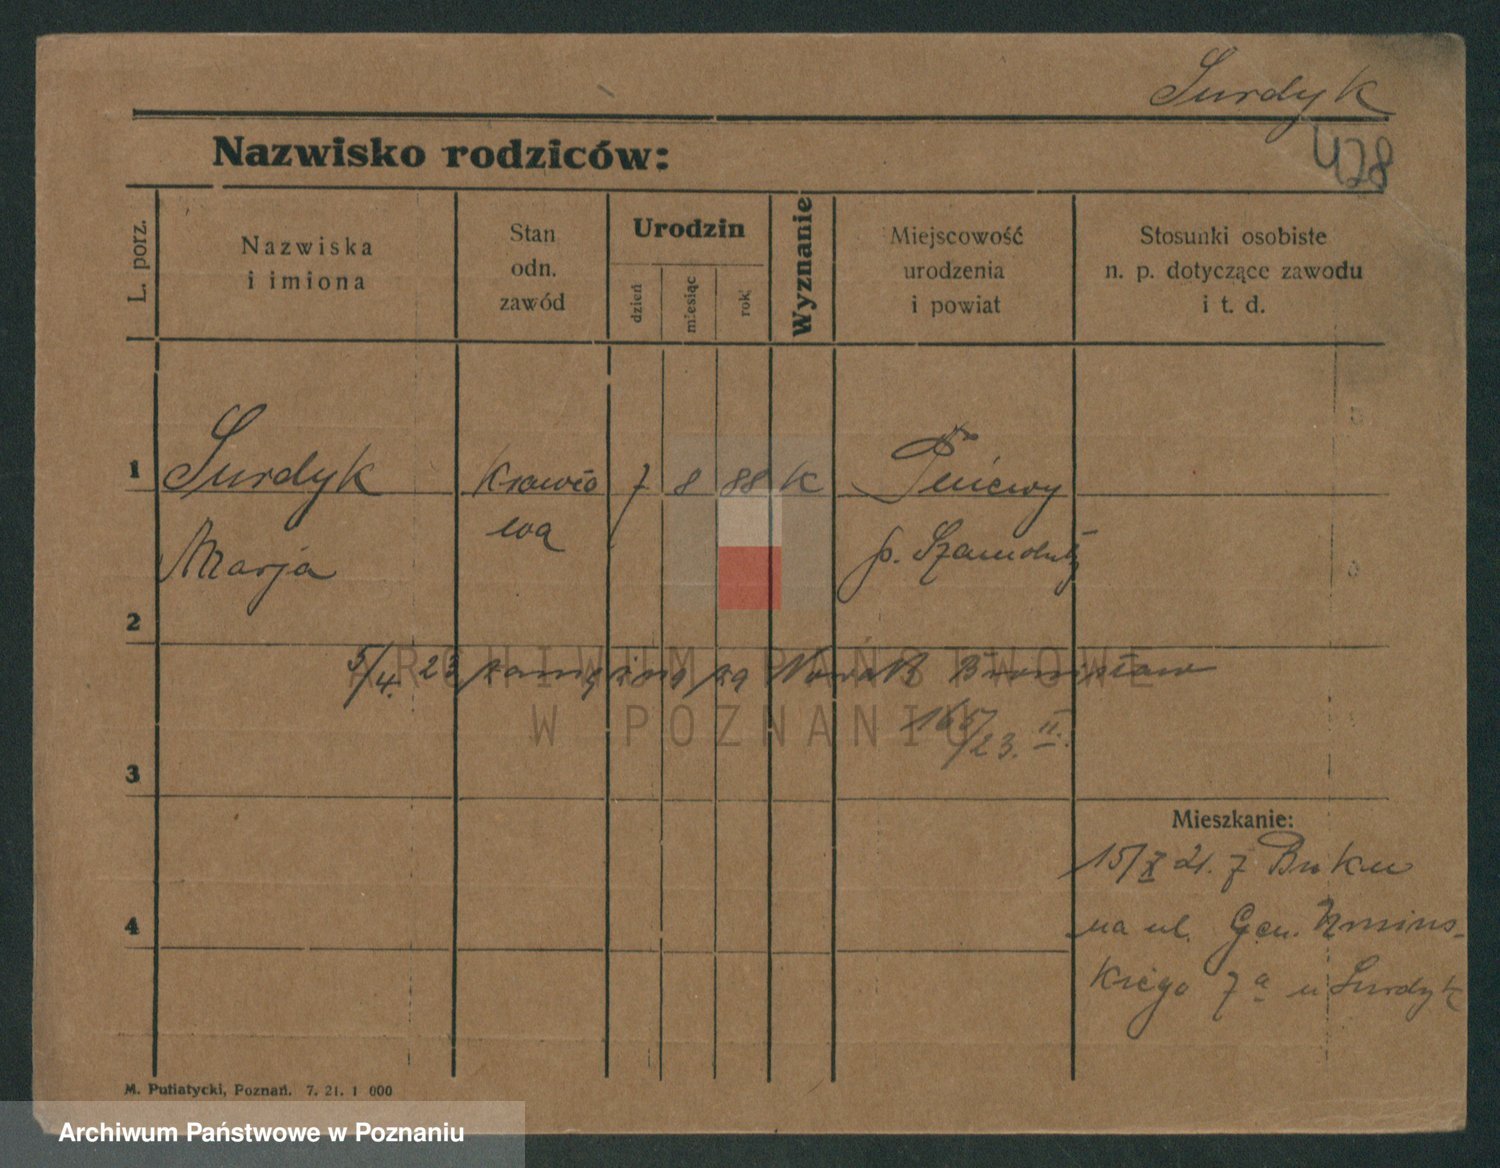 Surdyk
428
Nazwisko rodziców:
L. porz.
Nazwiska
i imiona
Stan
odn.
zawód
Urodzin
dzień
miesiąc
rok
Wyznanie
Miejscowość
urodzenia
i powiat
Stosunki osobiste
n. p. dotyczące zawodu
i t. d.
1
Surdyk
Krawco
7
8
88
K
Pniewy
wa
Marja
p. Szamotuły
2
5/4. 23 zamężna za Bronisław
165/23. II.
ARCHIWUM PAŃSTWOWE
W POZNANIU
3
Mieszkanie:
15/X 21. z Buku
4
na ul. Gen. Umińs-
kiego 7a u Surdyk
M. Putiatycki, Poznań. 7. 21. 1 000
Archiwum Państwowe w Poznaniu